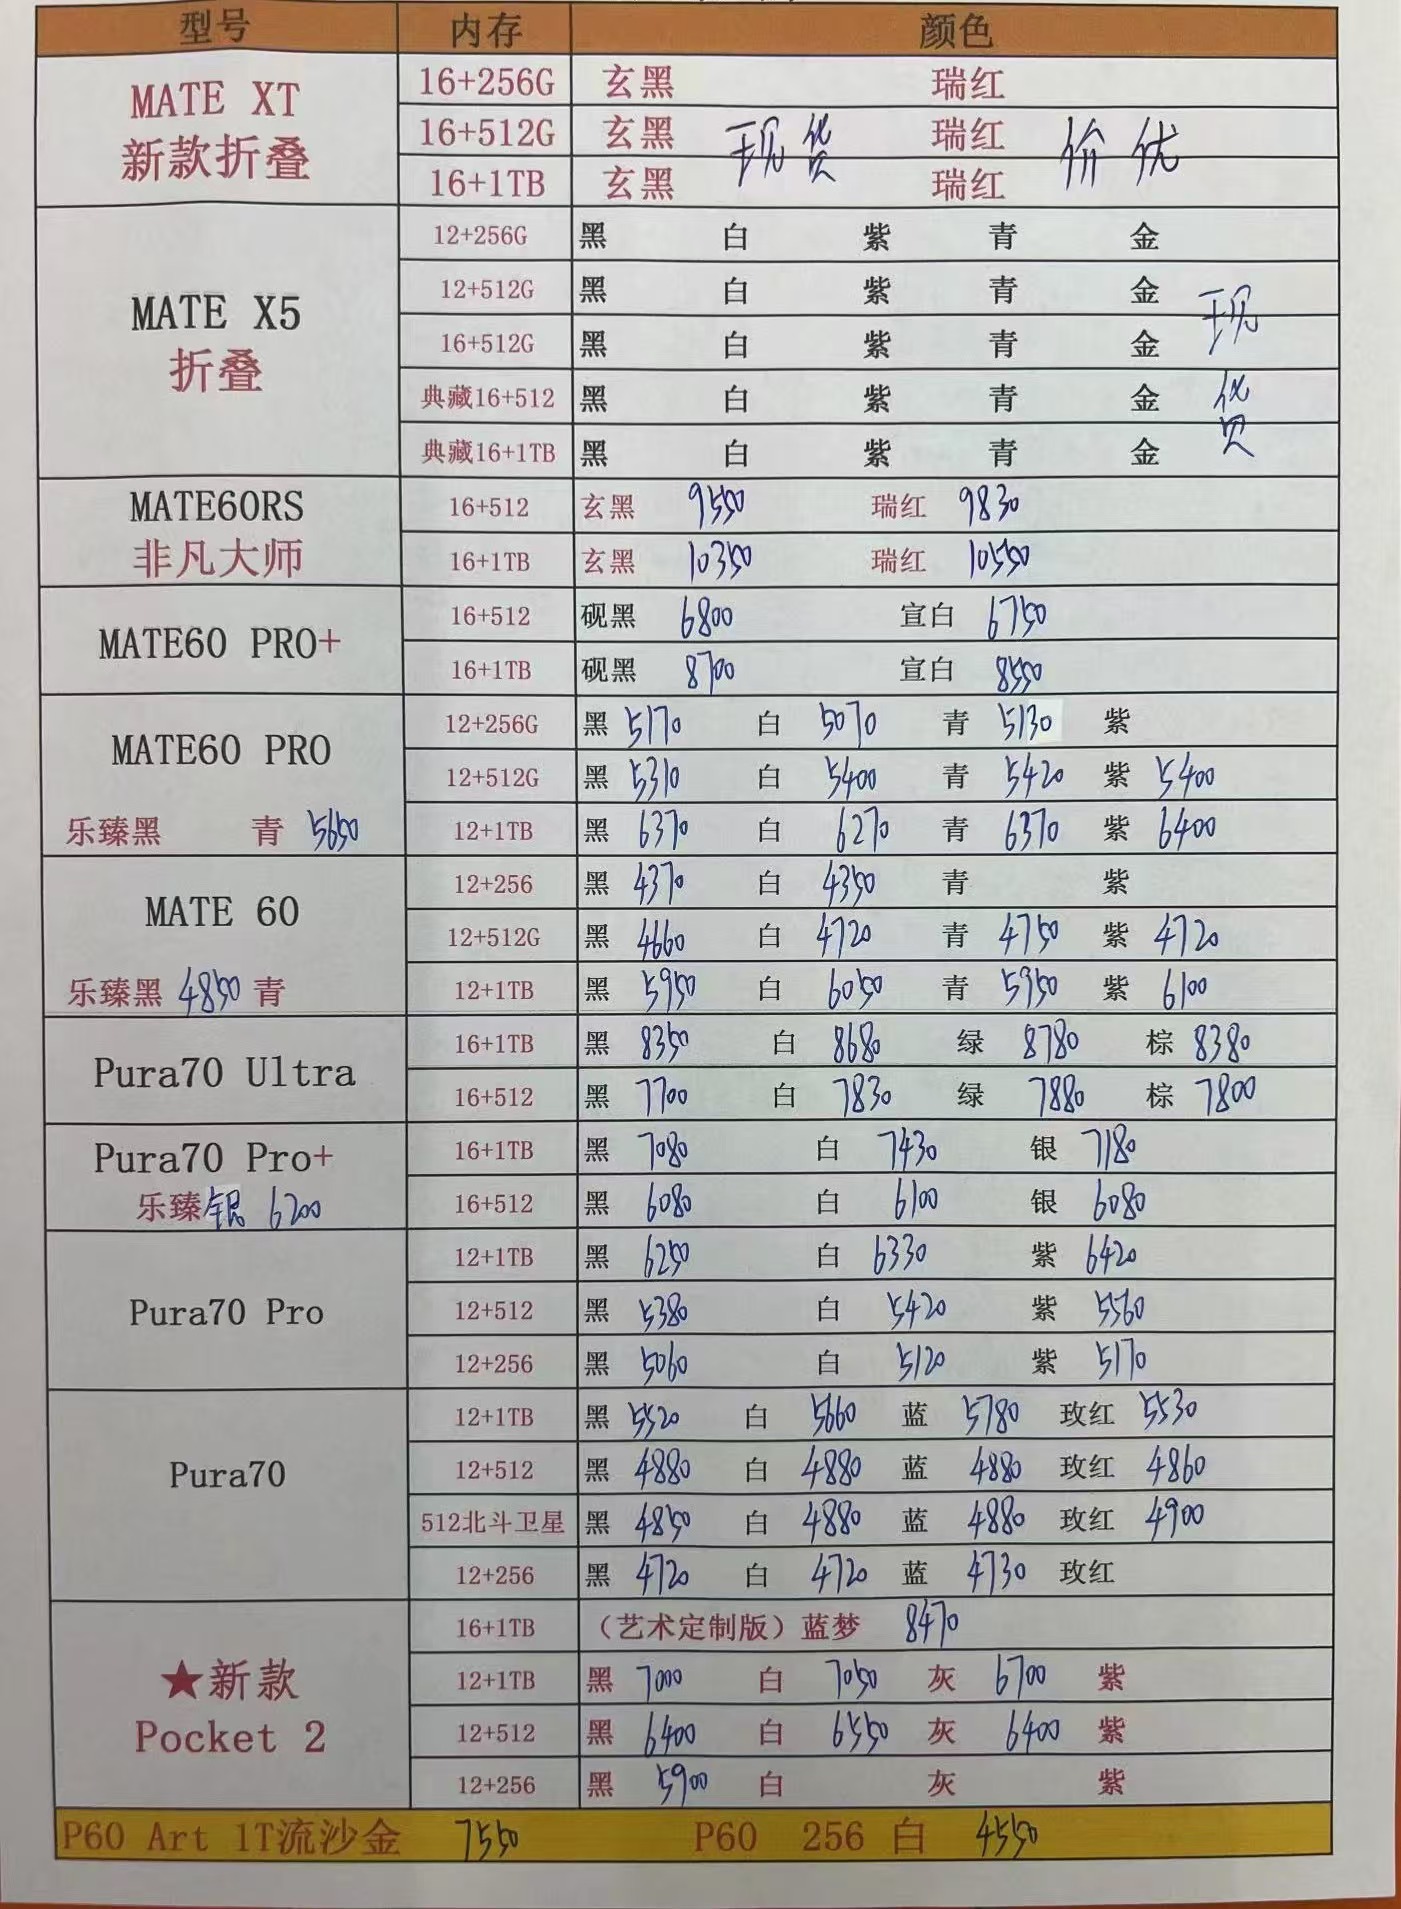 型号 内存 颜色
MATE XT 新款折叠
16+256G 玄黑 瑞红
16+512G 玄黑 瑞红
16+1TB 玄黑 瑞红
现货 价优
MATE X5 折叠
12+256G 黑 白 紫 青 金
12+512G 黑 白 紫 青 金
16+512G 黑 白 紫 青 金
典藏16+512 黑 白 紫 青 金
典藏16+1TB 黑 白 紫 青 金
现货
MATE60RS 非凡大师
16+512 玄黑 9550 瑞红 9830
16+1TB 玄黑 10350 瑞红 10550
MATE60 PRO+
16+512 砚黑 6800 宣白 6750
16+1TB 砚黑 8700 宣白 8550
MATE60 PRO
乐臻黑 青 5650
12+256G 黑 5170 白 5070 青 5130 紫
12+512G 黑 5310 白 5400 青 5420 紫 5400
12+1TB 黑 6370 白 6270 青 6370 紫 6400
MATE 60
乐臻黑 4850 青
12+256 黑 4370 白 4350 青 紫
12+512G 黑 4660 白 4720 青 4750 紫 4720
12+1TB 黑 5950 白 6050 青 5950 紫 6100
Pura70 Ultra
16+1TB 黑 8350 白 8680 绿 8780 棕 8380
16+512 黑 7700 白 7830 绿 7880 棕 7800
Pura70 Pro+
乐臻银 6200
16+1TB 黑 7080 白 7430 银 7180
16+512 黑 6080 白 6100 银 6080
Pura70 Pro
12+1TB 黑 6250 白 6330 紫 6420
12+512 黑 5380 白 5420 紫 5560
12+256 黑 5060 白 5120 紫 5170
Pura70
12+1TB 黑 5520 白 5660 蓝 5780 玫红 5530
12+512 黑 4880 白 4880 蓝 4880 玫红 4860
512北斗卫星 黑 4850 白 4880 蓝 4880 玫红 4900
12+256 黑 4720 白 4720 蓝 4730 玫红
★新款
Pocket 2
16+1TB （艺术定制版）蓝梦 8470
12+1TB 黑 7000 白 7050 灰 6700 紫
12+512 黑 6400 白 6550 灰 6400 紫
12+256 黑 5900 白 灰 紫
P60 Art 1T流沙金 7550 P60 256 白 4550